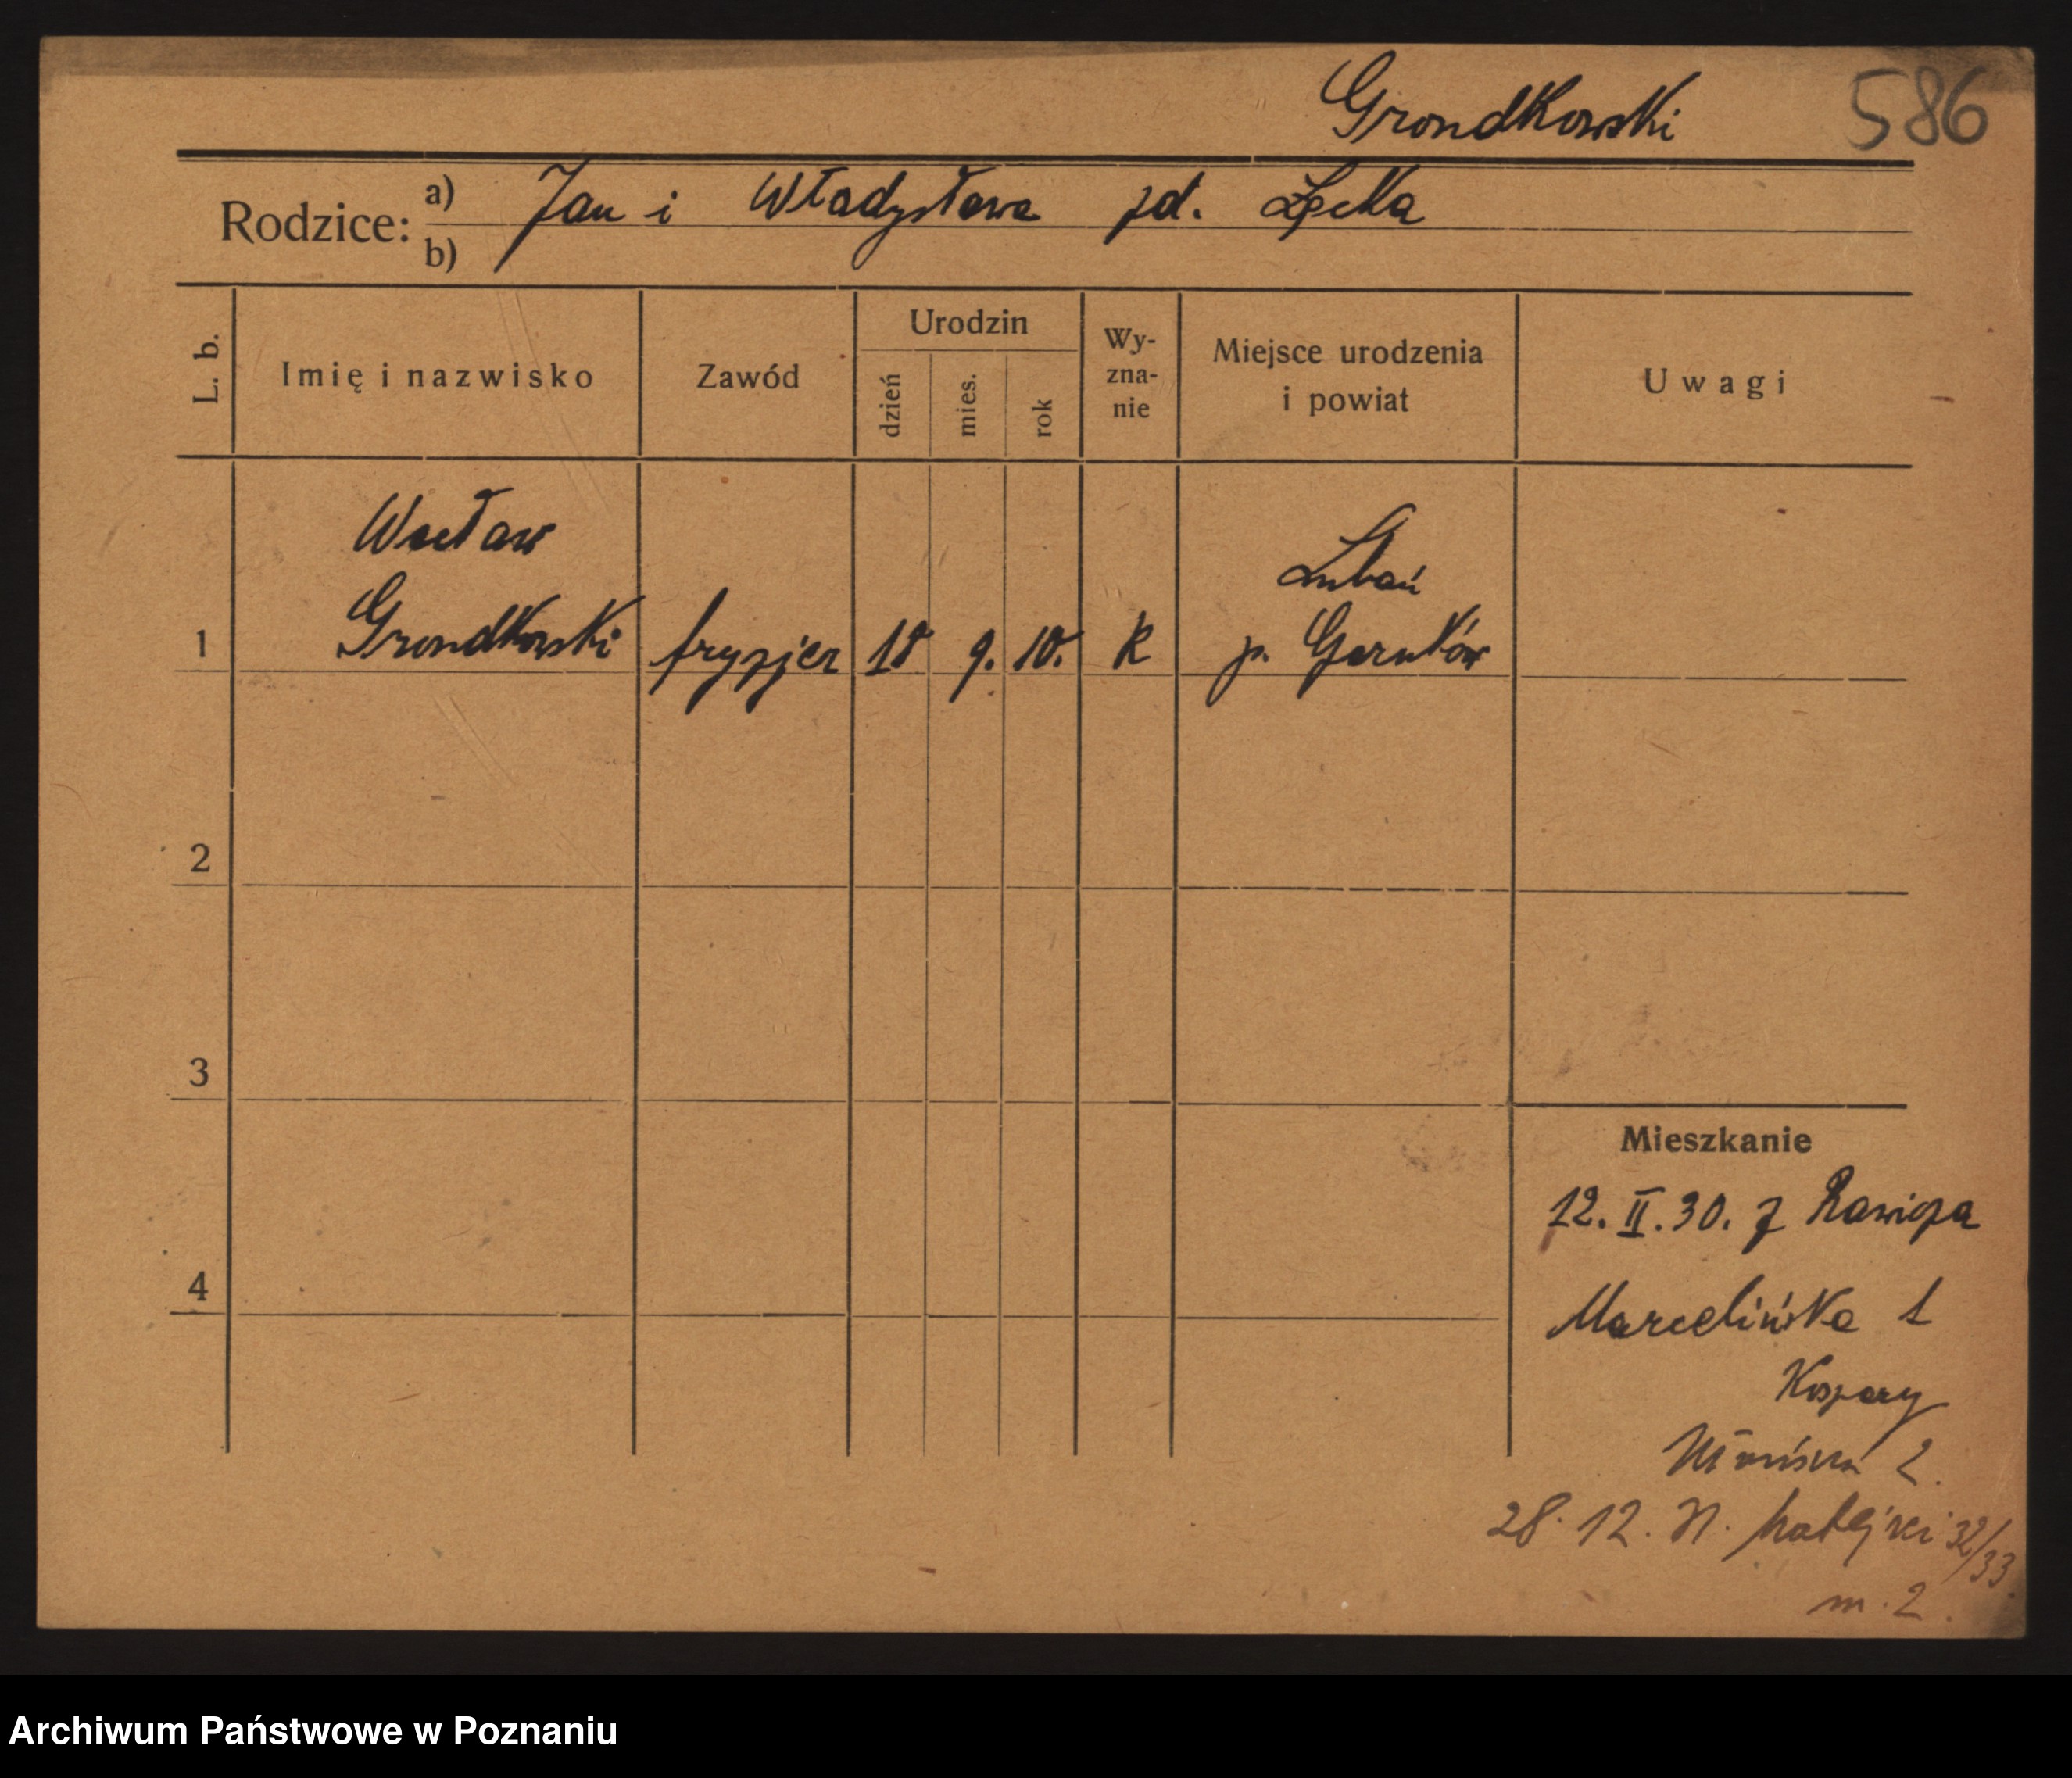 Grondkowski
586
Rodzice:
a) Jan i Władysława zd. Łęcka
b)
L. b.
Imię i nazwisko
Zawód
Urodzin
dzień
mies.
rok
Wy-
zna-
nie
Miejsce urodzenia
i powiat
Uwagi
Wacław
Lubań
1 Grondkowski fryzjer 18 9. 10. K p.
2
3
4
Mieszkanie
12. II. 30. z
Marcelińska 1
28. 12. Matejki 32/33
m. 2.
Archiwum Państwowe w Poznaniu